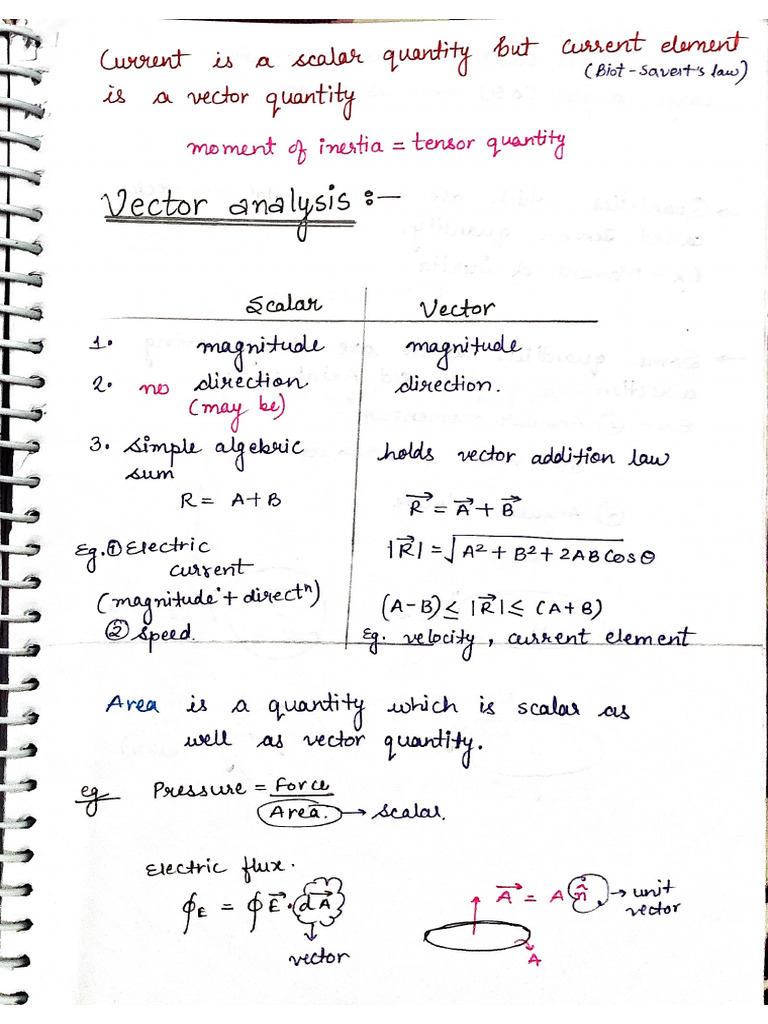 Current is a scalar quantity but current element
(Biot-Savert's law)
is a vector quantity
moment of inertia = tensor quantity
Vector analysis :-
Scalar Vector
1. magnitude magnitude
2. no direction direction.
(may be)
3. simple algebric holds vector addition law
sum
R = A+B R⃗ = A⃗ + B⃗
Eg. ① Electric |R⃗| = √(A² + B² + 2AB Cos θ)
current
(magnitude + directⁿ) (A-B) ≤ |R⃗| ≤ (A+B)
② Speed. Eg. velocity, current element
Area is a quantity which is scalar as
well as vector quantity.
eg Pressure = Force
Area. → scalar.
Electric flux.
ϕE = ∮E⃗·dA⃗ A⃗ = A n̂ → unit
vector
vector
A